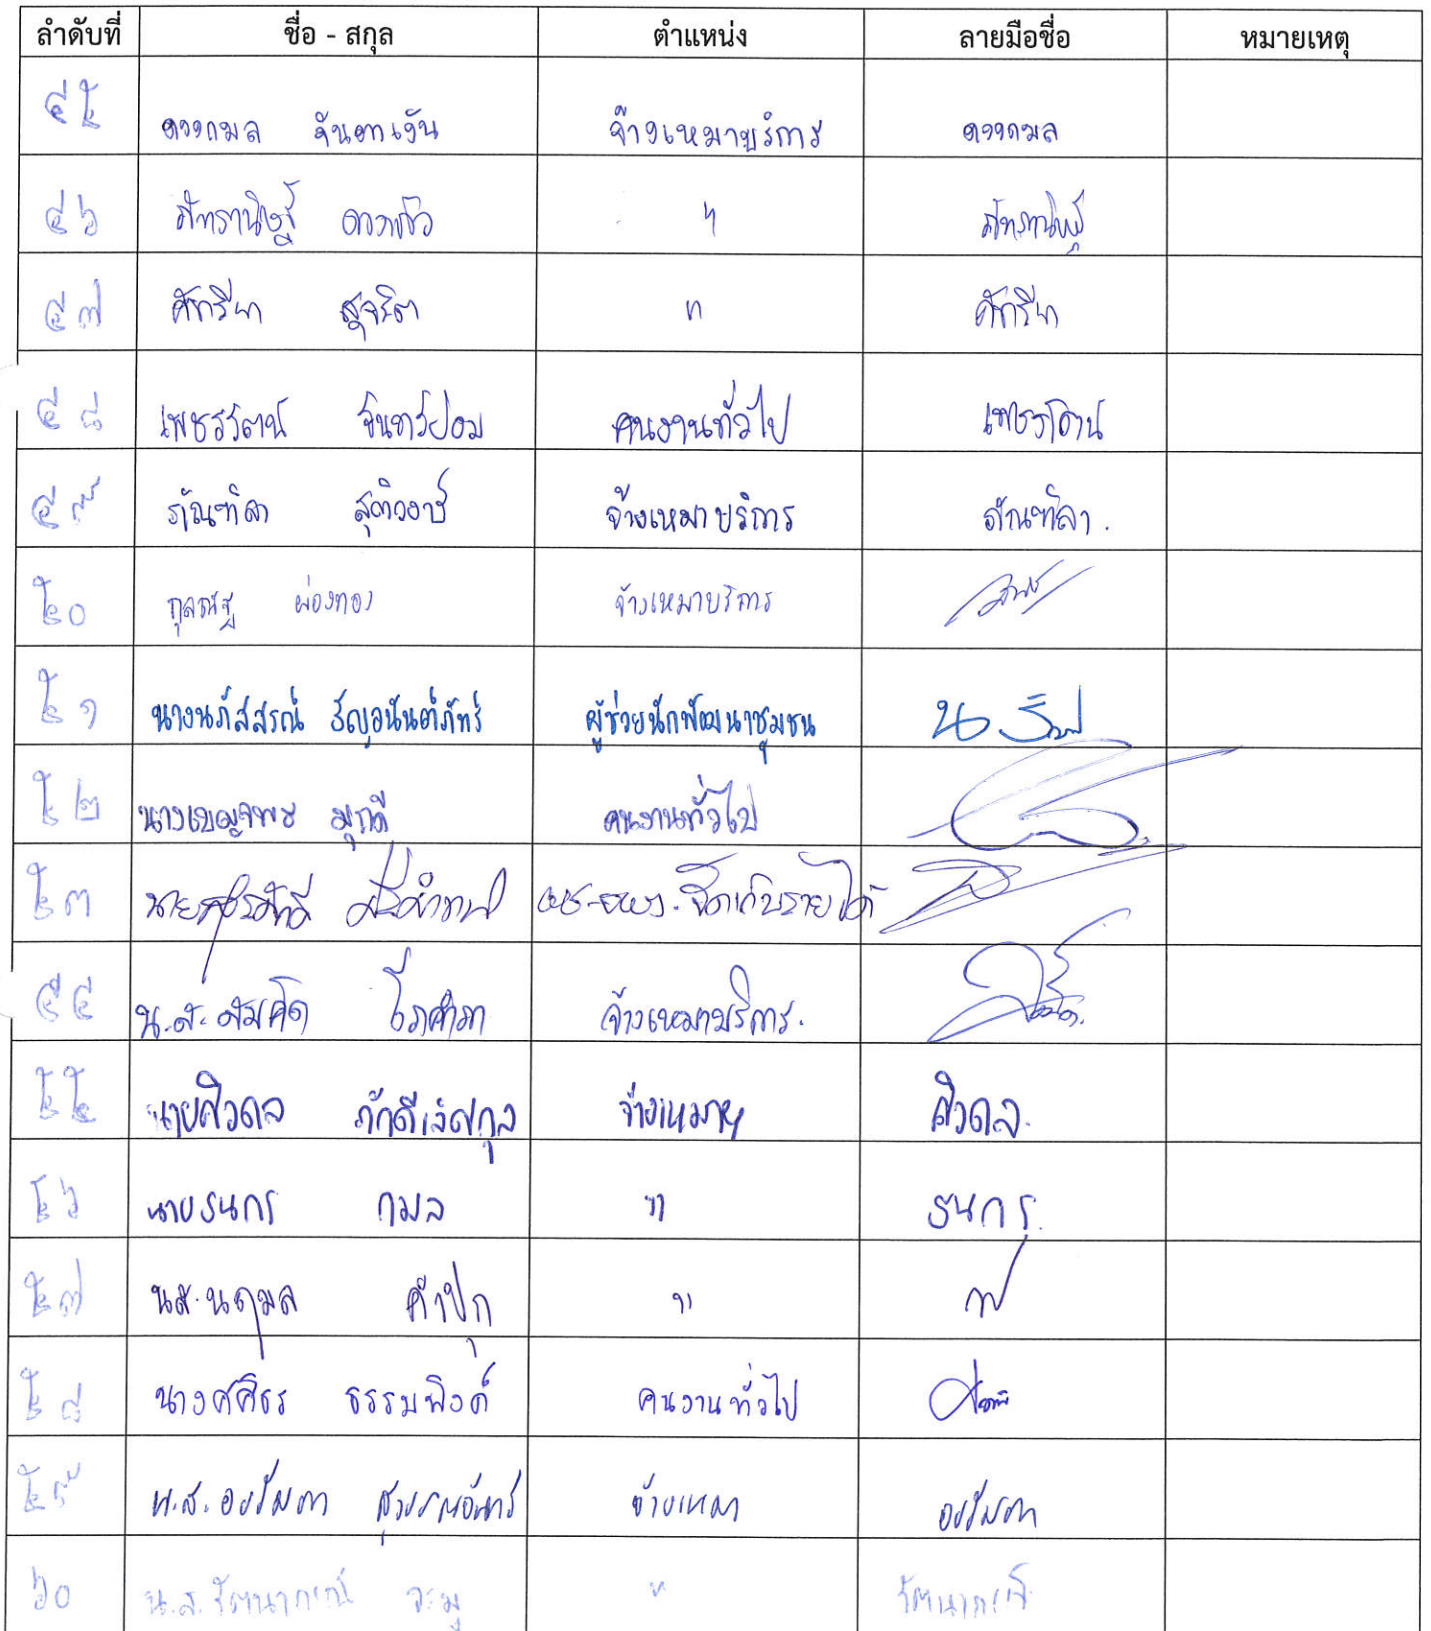 ลำดับที่ ชื่อ - สกุล ตำแหน่ง ลายมือชื่อ หมายเหตุ
๔๕ ดวงกมล จันตาเงิน จ้างเหมาบริการ ดวงกมล
๔๖ ภัทรานิษฐ์ ดวงแก้ว " ภัทรานิษฐ์
๔๗ ศัทรียา สุจริต " ศัทรียา
๔๘ เพชรรัตน์ จันทร์ปอม คนงานทั่วไป เพชรรัตน์
๔๙ ภัณฑิลา สุติวงษ์ จ้างเหมาบริการ ภัณฑิลา.
๕๐ กุลณัฐ ผ่องทอง จ้างเหมาบริการ
๕๑ นางนภัสสรณ์ ธัญอนันต์ภัทร์ ผู้ช่วยนักพัฒนาชุมชน
๕๒ นางเบญจพร มุกดี คนงานทั่วไป
๕๓ นายสุรศักดิ์ ผช.จพง.จัดเก็บรายได้
๕๔ น.ส.สมคิด โภคาภา จ้างเหมาบริการ.
๕๕ นายศิวดล ภักดีเลิศกุล จ้างเหมาฯ ศิวดล.
๕๖ นายธนกร กมล " ธนกร
๕๗ นส.นฤมล คำปุก "
๕๘ นางศศิธร ธรรมพิงค์ คนงานทั่วไป
๕๙ น.ส.อรรัมภา สุวรรณอินทร์ จ้างเหมา อรรัมภา
๖๐ น.ส.รัตนาภรณ์ จะมู " รัตนาภรณ์